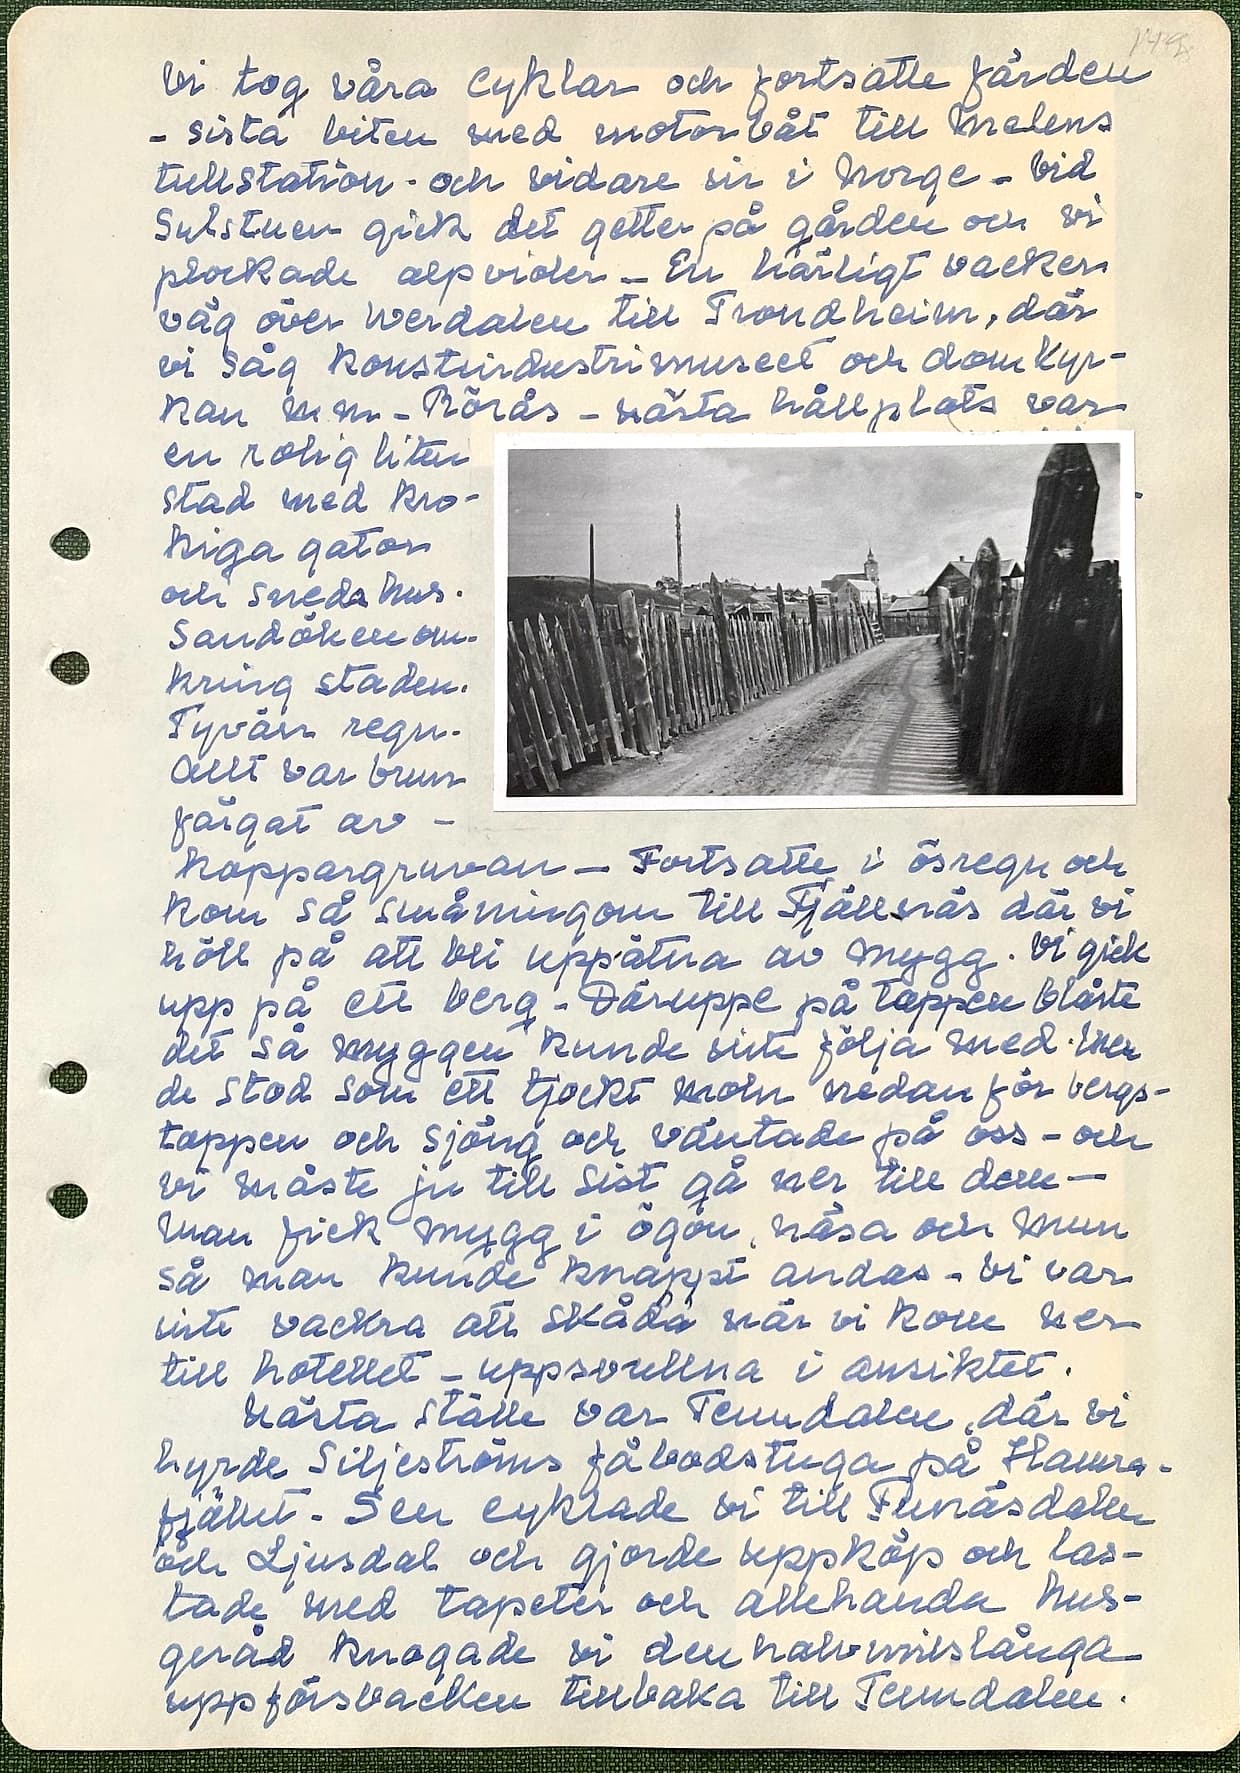 Vi tog våra cyklar och fortsatte färden
- sista biten med motorbåt till Melens
tullstation - och vidare in i Norge - Vid
Sulstuen gick det getter på gården och vi
plockade alpvioler - En härligt vacker
väg över Werdalen till Trondheim, där
vi såg konstindustrimuseet och domkyr-
kan m m - Rörås - nästa hållplats var
en rolig liten
stad med kro-
kiga gator
och sneda hus.
Sandöken om-
kring staden.
Tyvärr regn.
Allt var brun
färgat av -
koppargruvan - Fortsatte i ösregn och
kom så småningom till Fjällnäs där vi
höll på att bli uppätna av mygg. Vi gick
upp på ett berg - Däruppe på toppen blåste
det så myggen kunde inte följa med. Men
de stod som ett tjockt moln nedanför bergs-
toppen och sjöng och väntade på oss - och
vi måste ju till sist gå ner till dem -
Man fick mygg i ögon, näsa och mun
så man kunde knappt andas - Vi var
inte vackra att skåda när vi kom ner
till hotellet - uppsvullna i ansiktet.
Nästa ställe var Tenndalen, där vi
hyrde Siljeströms fäbodstuga på Hamra-
fjället - Sen cyklade vi till Funäsdalen
och Ljusdal och gjorde uppköp och las-
tade med tapeter och allehanda hus-
geråd knogade vi den halvmilslånga
uppförsbacken tillbaka till Tenndalen.